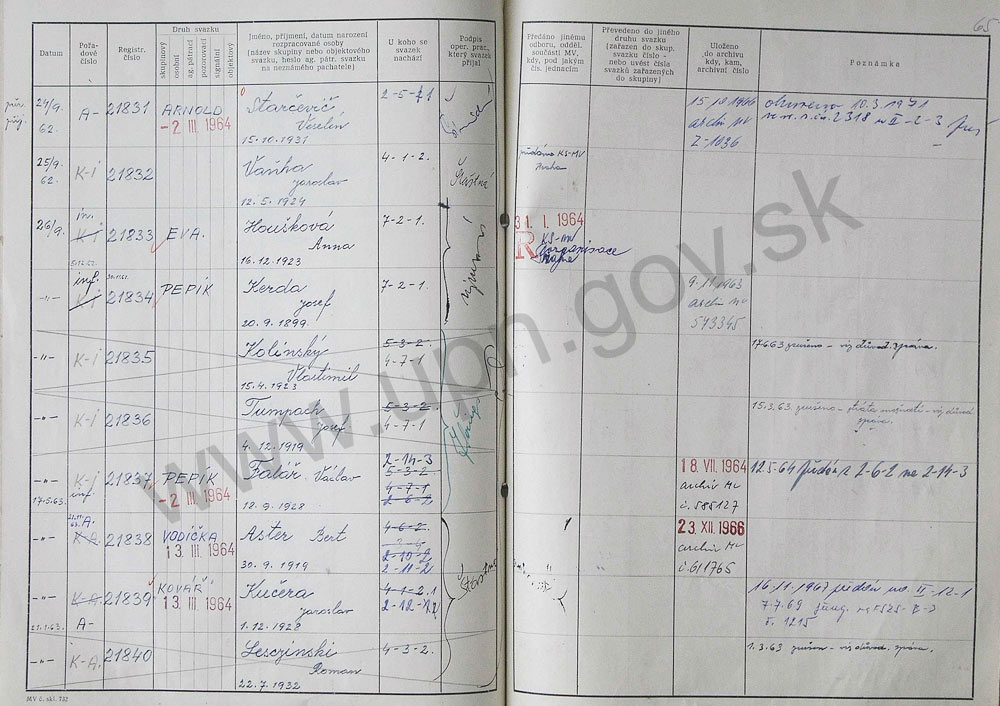 65
Datum
Pořadové číslo
Registr. číslo
Druh svazku
skupinový
osobní
ag. pátrací
pozorovací
signální
objektový
Jméno, příjmení, datum narození
rozpracované osoby
(název skupiny nebo objektového
svazku, heslo ag. pátr. svazku
na neznámého pachatele)
U koho se
svazek
nachází
Podpis
oper. prac.,
který svazek
přijal
Předáno jinému
odboru, odděl.
součásti MV,
kdy, pod jakým
čís. jednacím
Převedeno do jiného
druhu svazku
(zařazen do skup.
svazku číslo
nebo uvést čísla
svazků zařazených
do skupiny)
Uloženo
do archivu
kdy, kam,
archivní číslo
Poznámka
24/9. 62. A- 21831 ARNOLD
-2 III 1964
Starčevič
Veselin
15.10.1931
2-5-1
archiv
Z-1036
10.3.1971
25/9. 62. K-i 21832
Vaňha
Jaroslav
12.5.1924
4-1-2.
předáno KS-MV
Praha
26/9. K-i 21833 EVA.
5.12.62.
Houšková
Anna
16.12.1923
7-2-1.
31. I. 1964
R
KS-MV
inf.
-"- K-i 21834 PEPÍK
Kerda
Josef
20.9.1899.
7-2-1.
archiv MV
573345
-"- K-i 21835
Kolínský
Vlastimil
15.4.1923
5-3-2.
4-7-1
17.6.63 zrušeno - viz důvod. zpráva.
-"- K-i 21836
Tumpach
Josef
4.12.1919
5-3-2.
4-7-1
15.3.63. zrušeno - ztráta možností - viz důvod.
zpráva.
-"- K-i 21837 PEPÍK
inf.
17.5.63.
-2 III 1964
Falář Václav
18.9.1928
2-14-3
5-3-2.
4-7-1
2-6-2
18. VII. 1964
archiv MV
č. 585127
12.5.64 předán z 2-6-2 na 2-14-3
A.
-"- K-A. 21838 VODIČKA
13. III. 1964
Aster Bert
30.9.1919
4-6-2.
2-10-2
2-11-2
23. XII. 1966
archiv MV
č. 611765
-"- K-A. 21839 KOVÁŘ
13. III. 1964
A-
Kučera
Jaroslav
1.12.1928
4-1-2.
2-12-
16.11.1967 předán na II-12-1
7.7.69
-"- K-A. 21840
Lesczinski
Roman
22.7.1932
4-3-2.
1.3.63 zrušen - viz důvod. zpráva.
MV č. skl. 732
www.upn.gov.sk